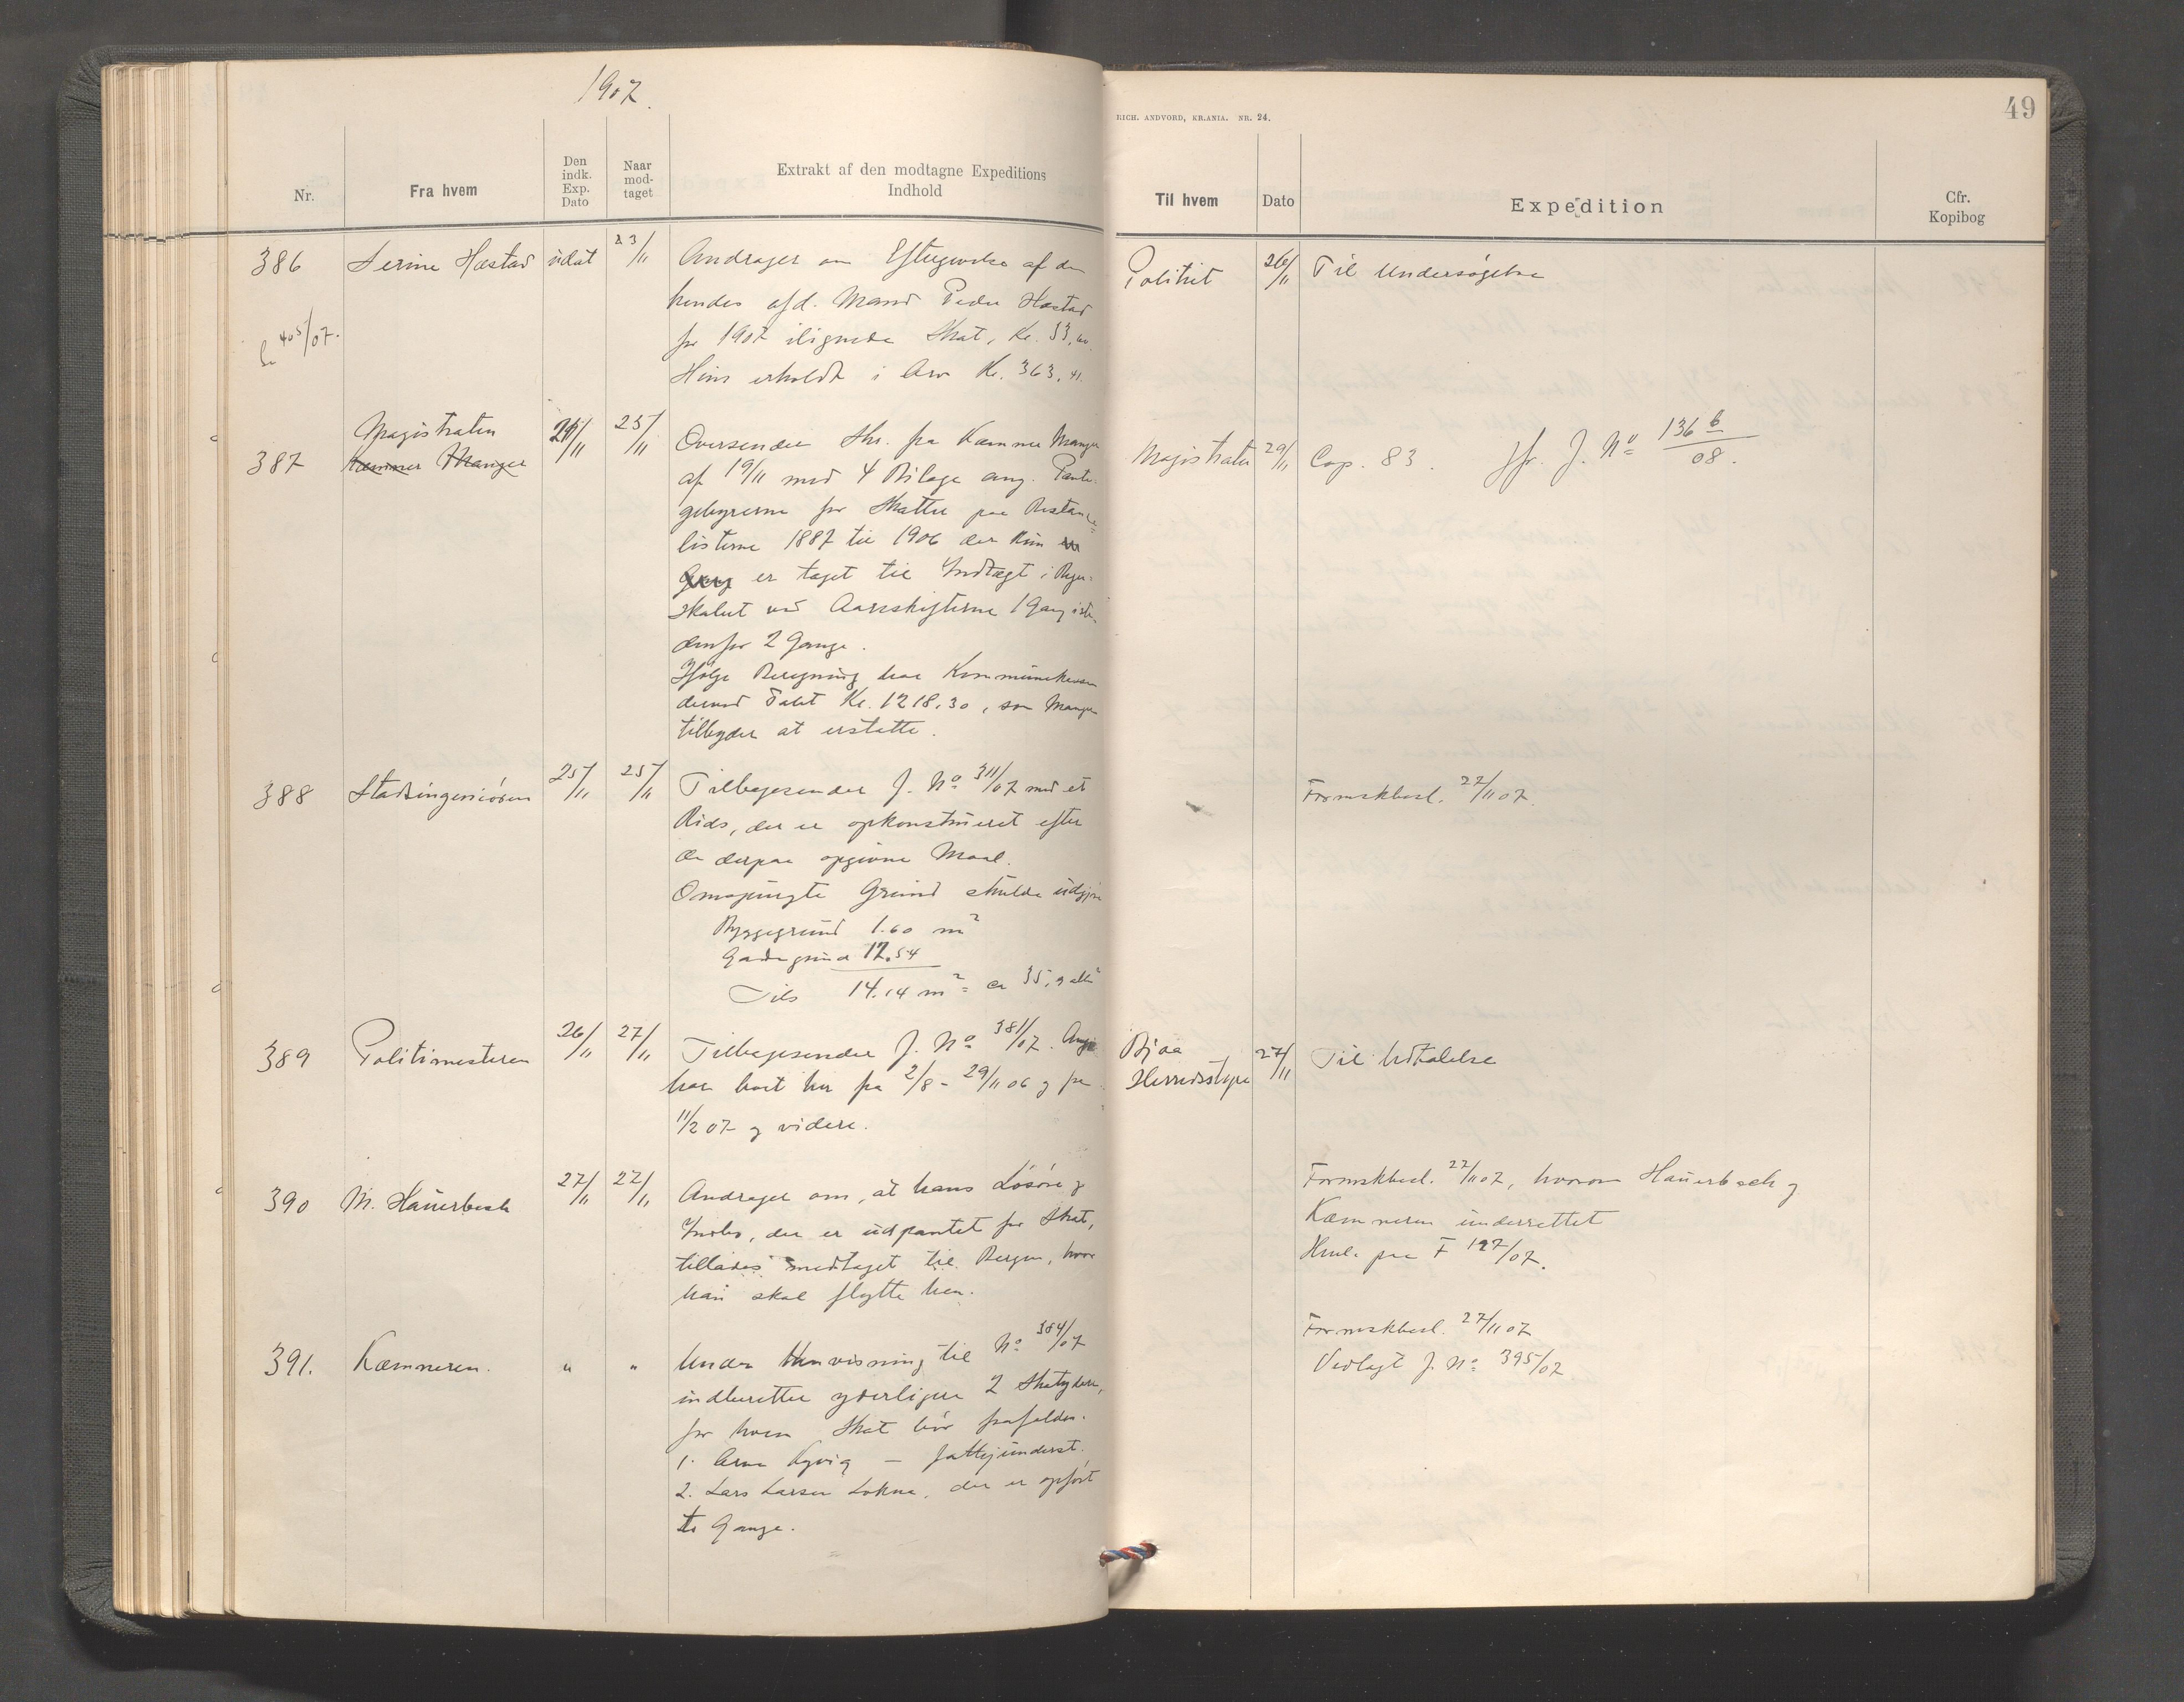 1907.
Nr.
Fra hvem
Den indk. Exp. Dato
Naar mod-taget
Extrakt af den modtagne Expeditions Indhold
386
Serine Hæstad
udat
23/11
Andrager om Eftergivelse af den
hendes afd. Mand Peder Hæstad
for 1907 ilignede Skat, Kr. 33,
Hun erholdt i Arv Kr. 363,41.
Se 405/07.
387
Magistraten
Kæmner Manger
/11
25/11
Oversender Skr. fra Kæmner Manger
af 19/11 med 4 Bilage ang. Pante-
gebyrerne for Skatter paa Restance-
listerne 1887 til 1906 der kun en
Gang er taget til Indtægt i Regn-
skabet ved Aarsskifterne 1 Gang iste-
denfor 2 Gange.
Ifølge Beregning har Kommunekassen
derved tabt Kr. 1218,30, som Manger
tilbyder at erstatte.
388
Stadsingeniøren
25/11
25/11
Tilbagesender J. No 311/07 med et
Rids, der er opkonstrueret efter
de derpaa opgivne Maal.
Omspurgte Grund skulde udgjøre
Byggegrund 1.60 m2
Gadegrund 12.54
Tils 14.14 m2 = ca 35,9 al2
389
Politimesteren
26/11
27/11
Tilbagesender J. No 381/07.
har boet her fra 2/8 - 29/11 06 og fra
11/2 07 og videre.
390
M. Hauerbach
27/11
27/11
Andrager om, at hans Løsøre og
Indbo, der er udpantet for Skat,
tillades medtaget til Bergen, hvor
han skal flytte hen.
391.
Kæmneren.
"
"
Under Henvisning til No 384/07
indberetter yderligere 2 Skatydere,
for hvem Skat bør frafaldes.
1. Arne Kyvig — fattigunderst.
2. Lars Larsen Lokna, der er opført
to Gange.
RICH. ANDVORD, KR.ANIA. NR. 24.
49
Til hvem
Dato
Expedition
Cfr. Kopibog
Politiet
26/11
Til Undersøgelse
Magistraten
29/11
Cop. 83. Jfr. J. No 136 b/08.
Formskbesl. 27/11 07.
Bjoa
Herredsstyre
27/11
Til Udtalelse
Formskbesl. 27/11 07, hvorom Hauerbach og
Kæmneren underrettet
Henl. paa F 127/07.
Formskbesl. 27/11 07
Vedlagt J. No 395/07